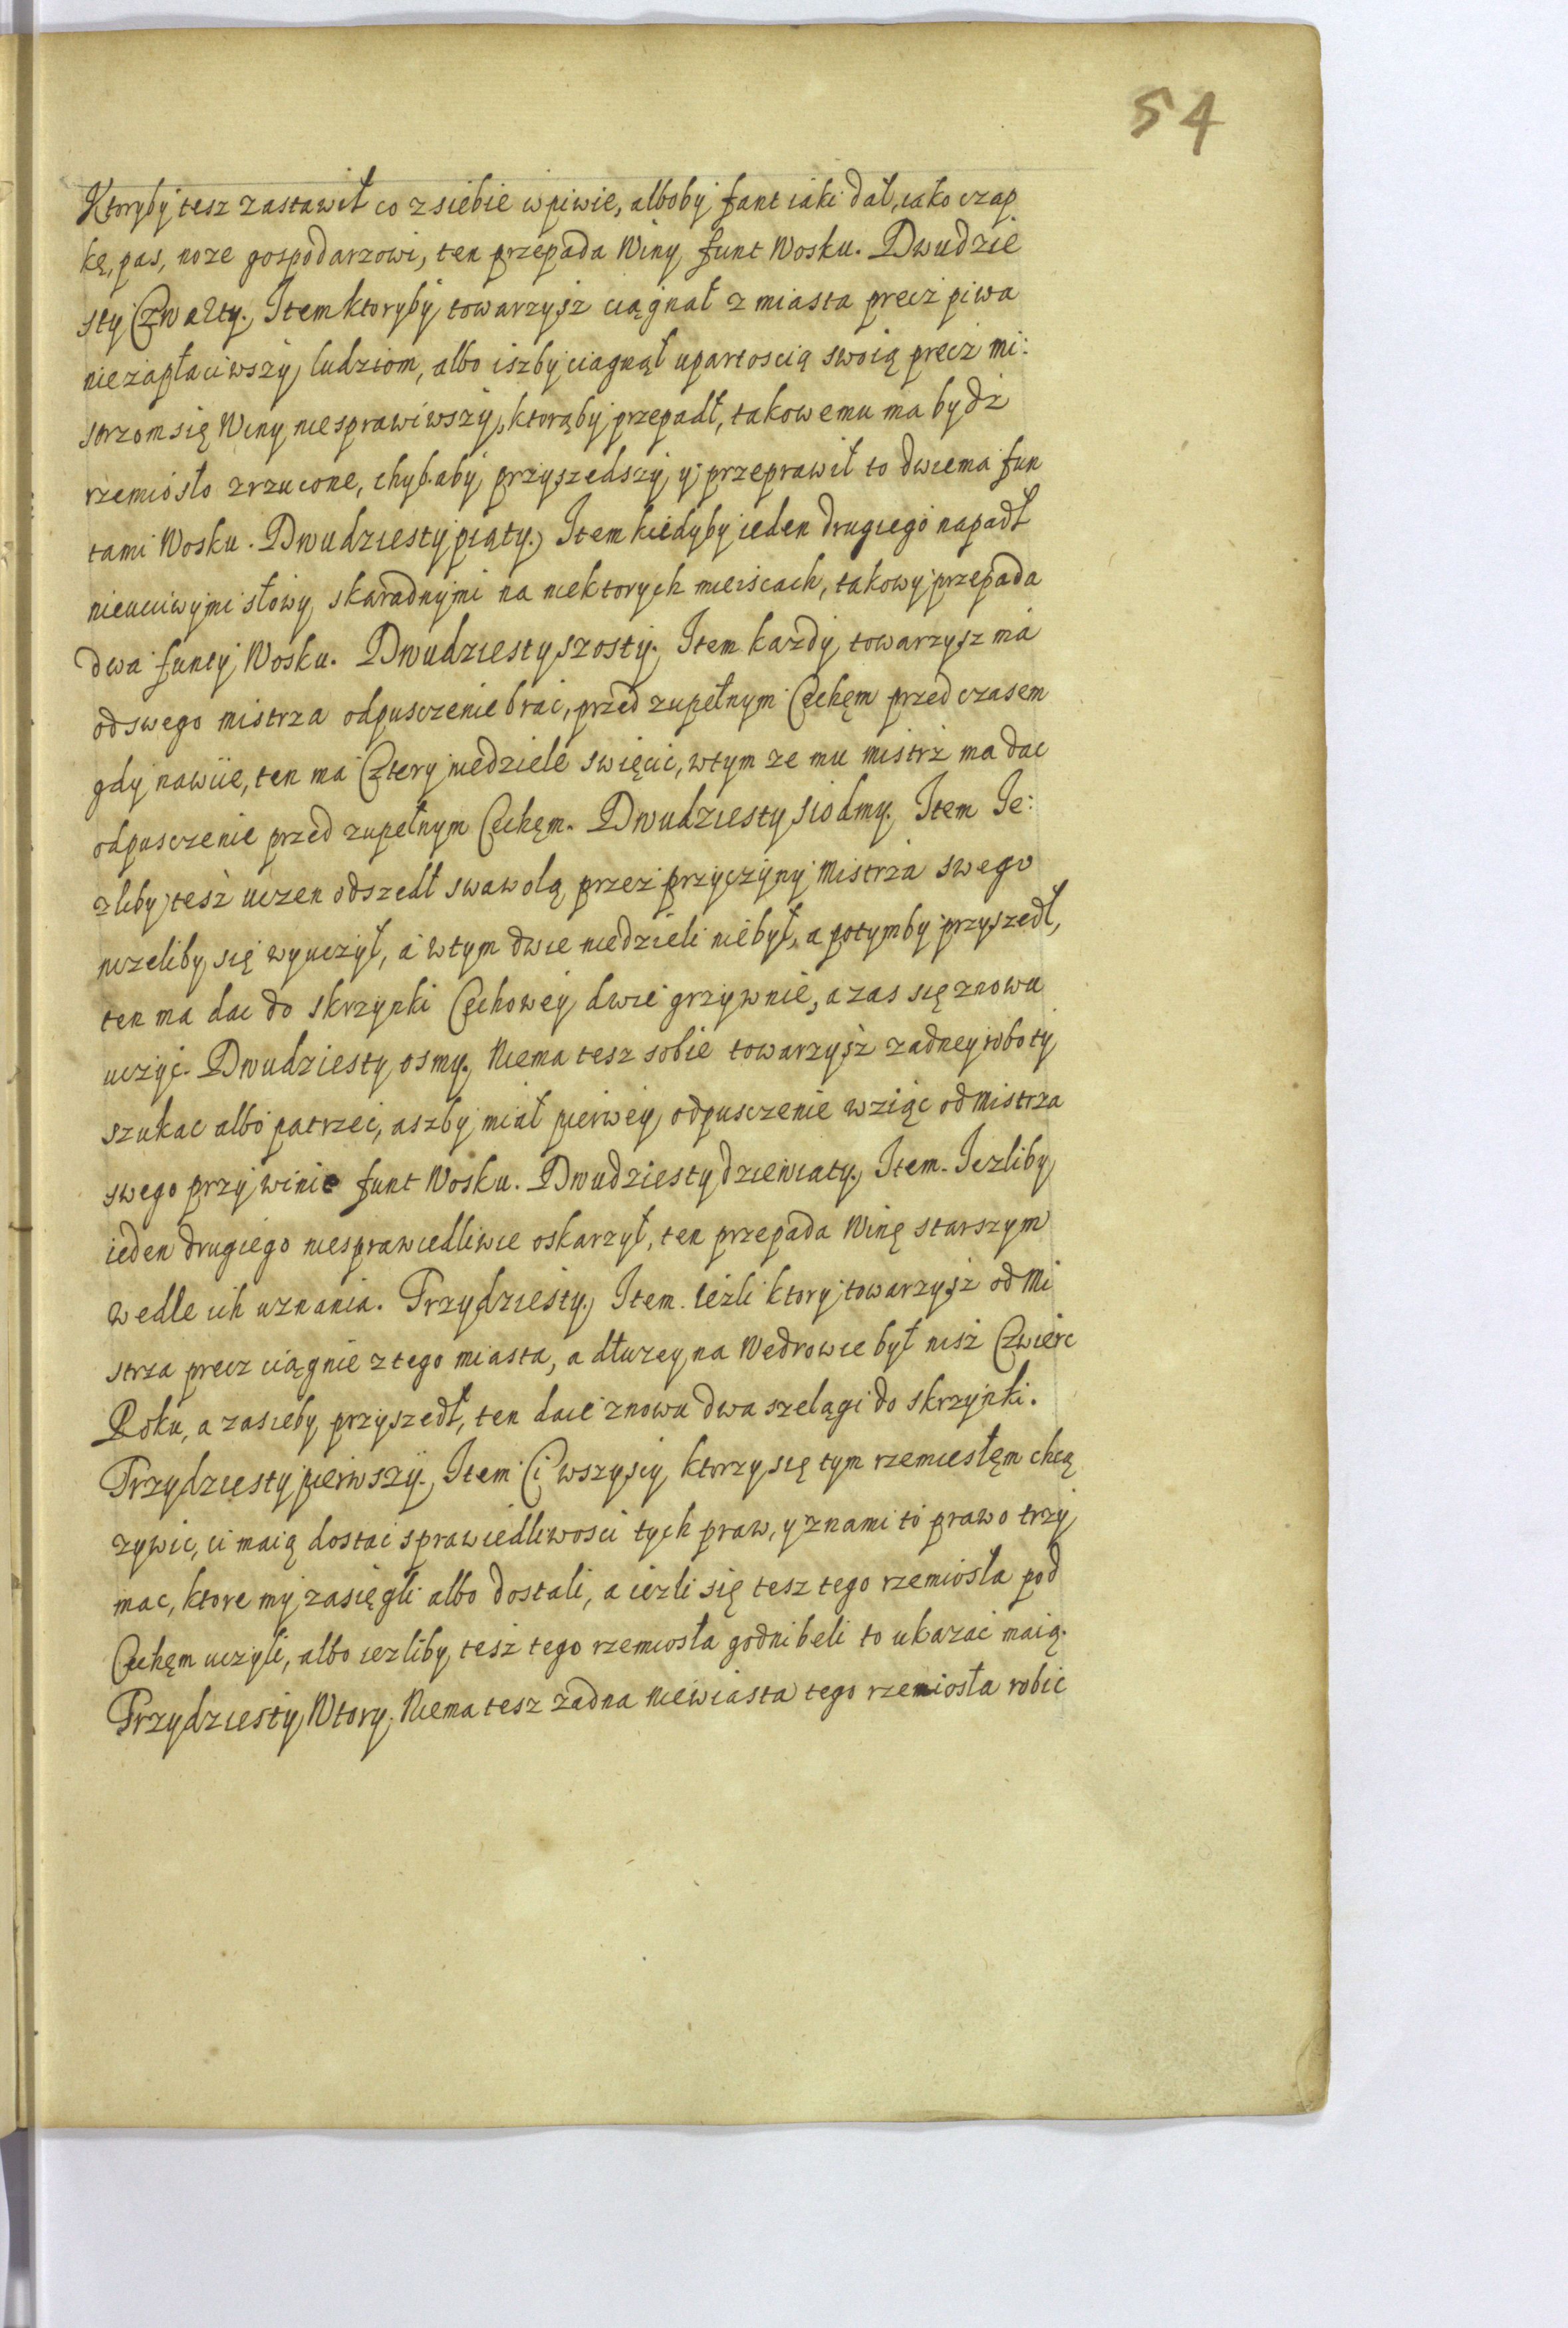 54
Ktoryby tesz zastawił co z siebie w piwie, alboby fant iaki dał, iako czap
kę, pas, noze gospodarzowi, ten przepada Winy funt Wosku. Dwudzie
sty Czwarty. Item ktoryby towarzysz ciągnał z miasta precz piwa
niezapłaciwszy ludziom, albo iszby ciagnął upartoscią swoią precz mi:
strzom się Winy niesprawiwszy, ktorąby przepadł, takowemu ma bydź
rzemiosło zrzucone, chyb.aby przyszedszy y przeprawił to dwiema fun
tami Wosku. Dwudziesty piąty. Item kiedyby ieden drugiego napadł
nieuciwymi słowy skaradnymi na niektorych mieiscach, takowy przepada
dwa funty Wosku. Dwudziesty szosty. Item kazdy towarzysz ma
od swego mistrza odpusczenie brac, przed zupełnym Cechęm przed czasem
gdy nawiie, ten ma Cztery niedziele swięcic, wtym ze mu mistrz ma dac
odpusczenie przed zupełnym Cechęm. Dwudziesty siodmy. Item Ie:
zliby tesz uczen odszedł swawolą przez przyczyny Mistrza swego
nizeliby się wyuczył, a wtym dwie niedzieli niebył, a potymby przyszedł,
ten ma dac do skrzynki Cechowey dwie grzywnie, a zas się znowu
uczyć. Dwudziesty osmy. Niema tesz sobie towarzysz zadney roboty
szukac albo patrzec, aszby miał pierwey odpusczenie wziąc od Mistrza
swego przy winie funt Wosku. Dwudziesty dziewiaty. Item. Iezliby
ieden drugiego niesprawiedliwie oskarzył, ten przepada Winę starszym
wedle ich uznania. Trzydziesty. Item. Ieźli ktory towarzysz od Mi
strza precz ciągnie z tego miasta, a dłuzey na Wedrowce był nisz Czwierc
Roku, a zasieby przyszedł, ten daie znowu dwa szelągi do skrzynki.
Trzydziesty pierwszy. Item Ci wszyscy ktorzy się tym rzemiesłęm chcą
zywic, ci maią dostac sprawiedliwosci tych praw, y znami to prawo trzy
mac, ktore my zasięgli albo dostali, a iezli się tesz tego rzemiosła pod
Cechęm uczyli, albo iezliby tesz tego rzemiosła godni beli to ukazac maią.
Trzydziesty Wtory. Niema tesz zadna Niewiasta tego rzemiosła robic